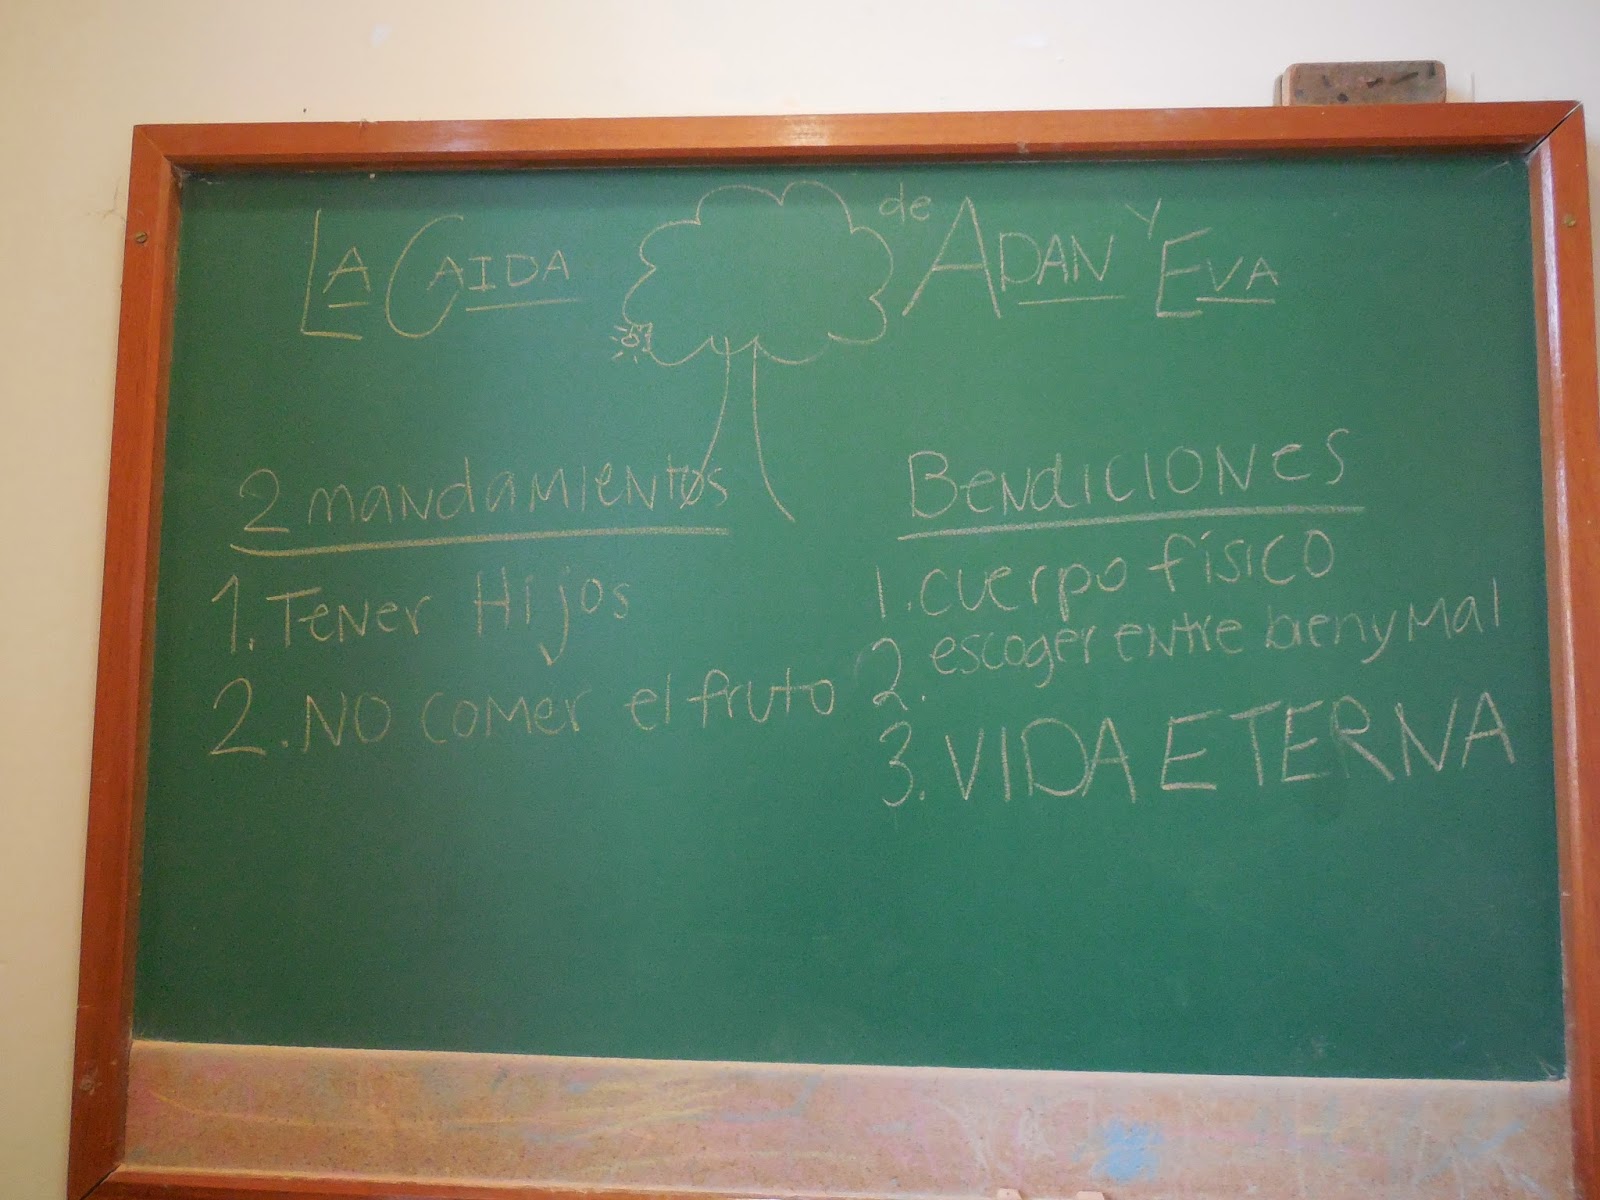 LA CAIDA de ADAN Y EVA
2 mandamientos
1. Tener Hijos
2. NO comer el fruto
Bendiciones
1. cuerpo físico
2. escoger entre bien y Mal
3. VIDA ETERNA